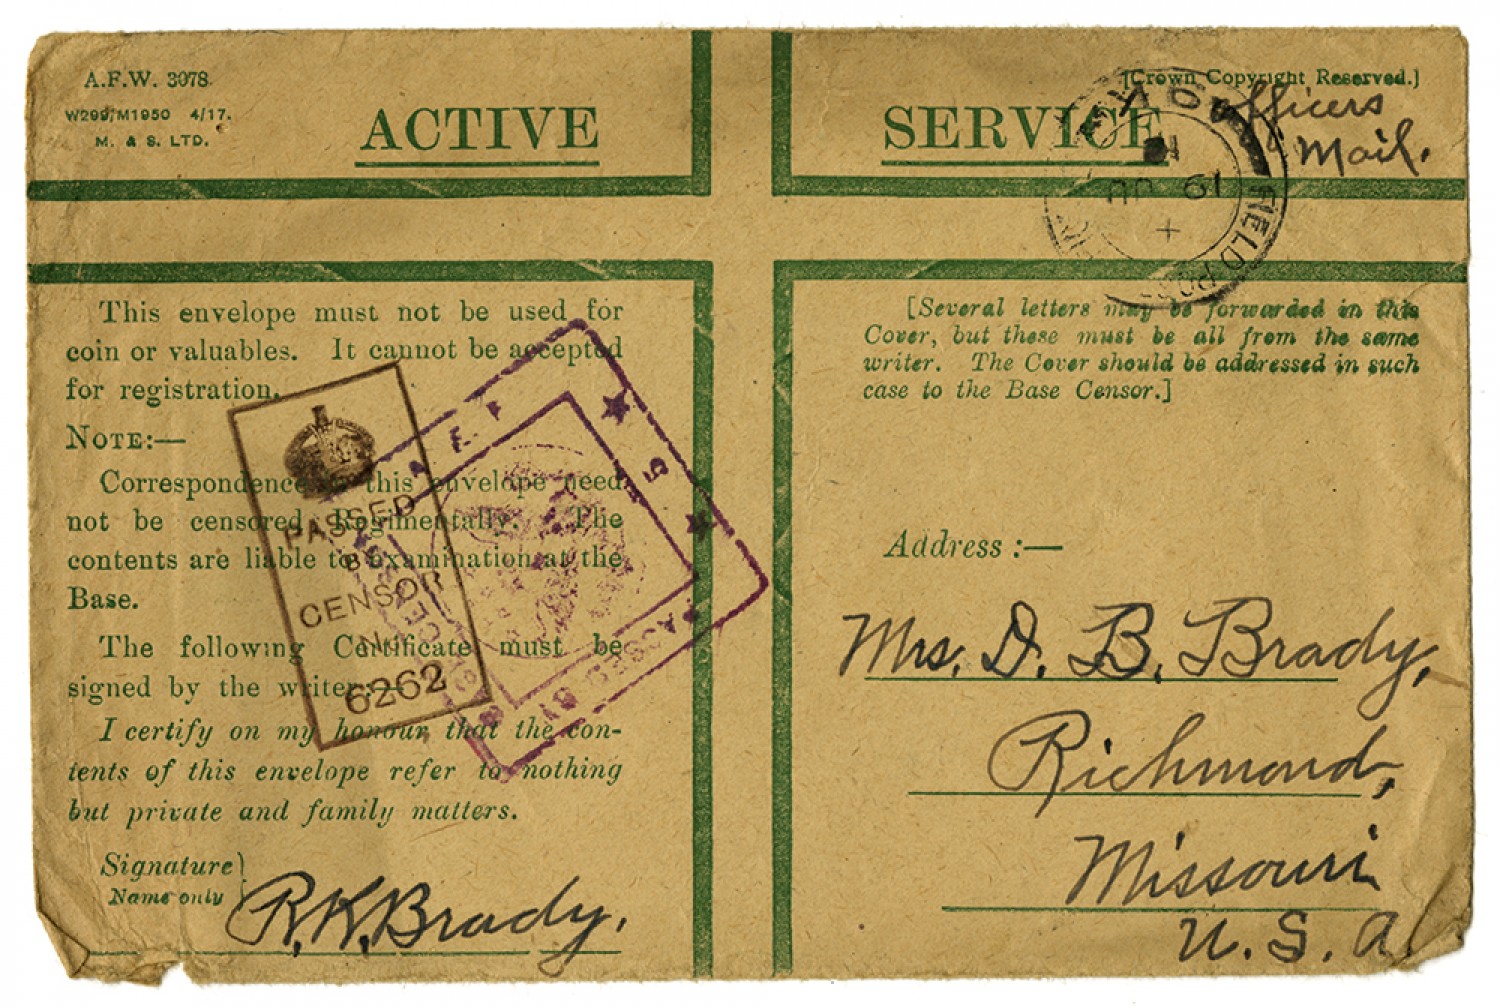 A.F.W. 3078.
W299/M1950 4/17.
M. & S. LTD.
ACTIVE
SERVICE
[Crown Copyright Reserved.]
Officers
Mail.
FIELD POST
19 JU
This envelope must not be used for
coin or valuables. It cannot be accepted
for registration.
NOTE:—
Correspondence in this envelope need
not be censored Regimentally. The
contents are liable to examination at the
Base.
The following Certificate must be
signed by the writer:—
I certify on my honour that the con-
tents of this envelope refer to nothing
but private and family matters.
Signature
Name only
R. K. Brady.
PASSED
BY
CENSOR
No.
6262
A. E. F.
PASSED BY
[Several letters may be forwarded in this
Cover, but these must be all from the same
writer. The Cover should be addressed in such
case to the Base Censor.]
Address :—
Mrs. D. B. Brady,
Richmond,
Missouri
U. S. A.